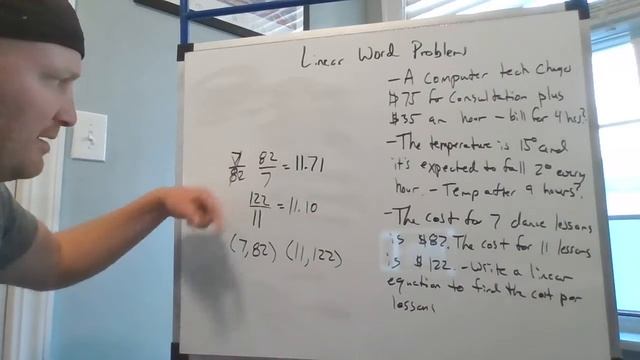 Linear Word Problems
- A computer tech charges
$75 for consultation plus
$35 an hour - bill for 4 hrs?
- The temperature is 15° and
it's expected to fall 2° every
hour. - Temp after 9 hours?
- The cost for 7 dance lessons
is $82. The cost for 11 lessons
is $122. - Write a linear
equation to find the cost per
lessons
7/82 82/7 = 11.71
122/11 = 11.10
(7,82) (11,122)